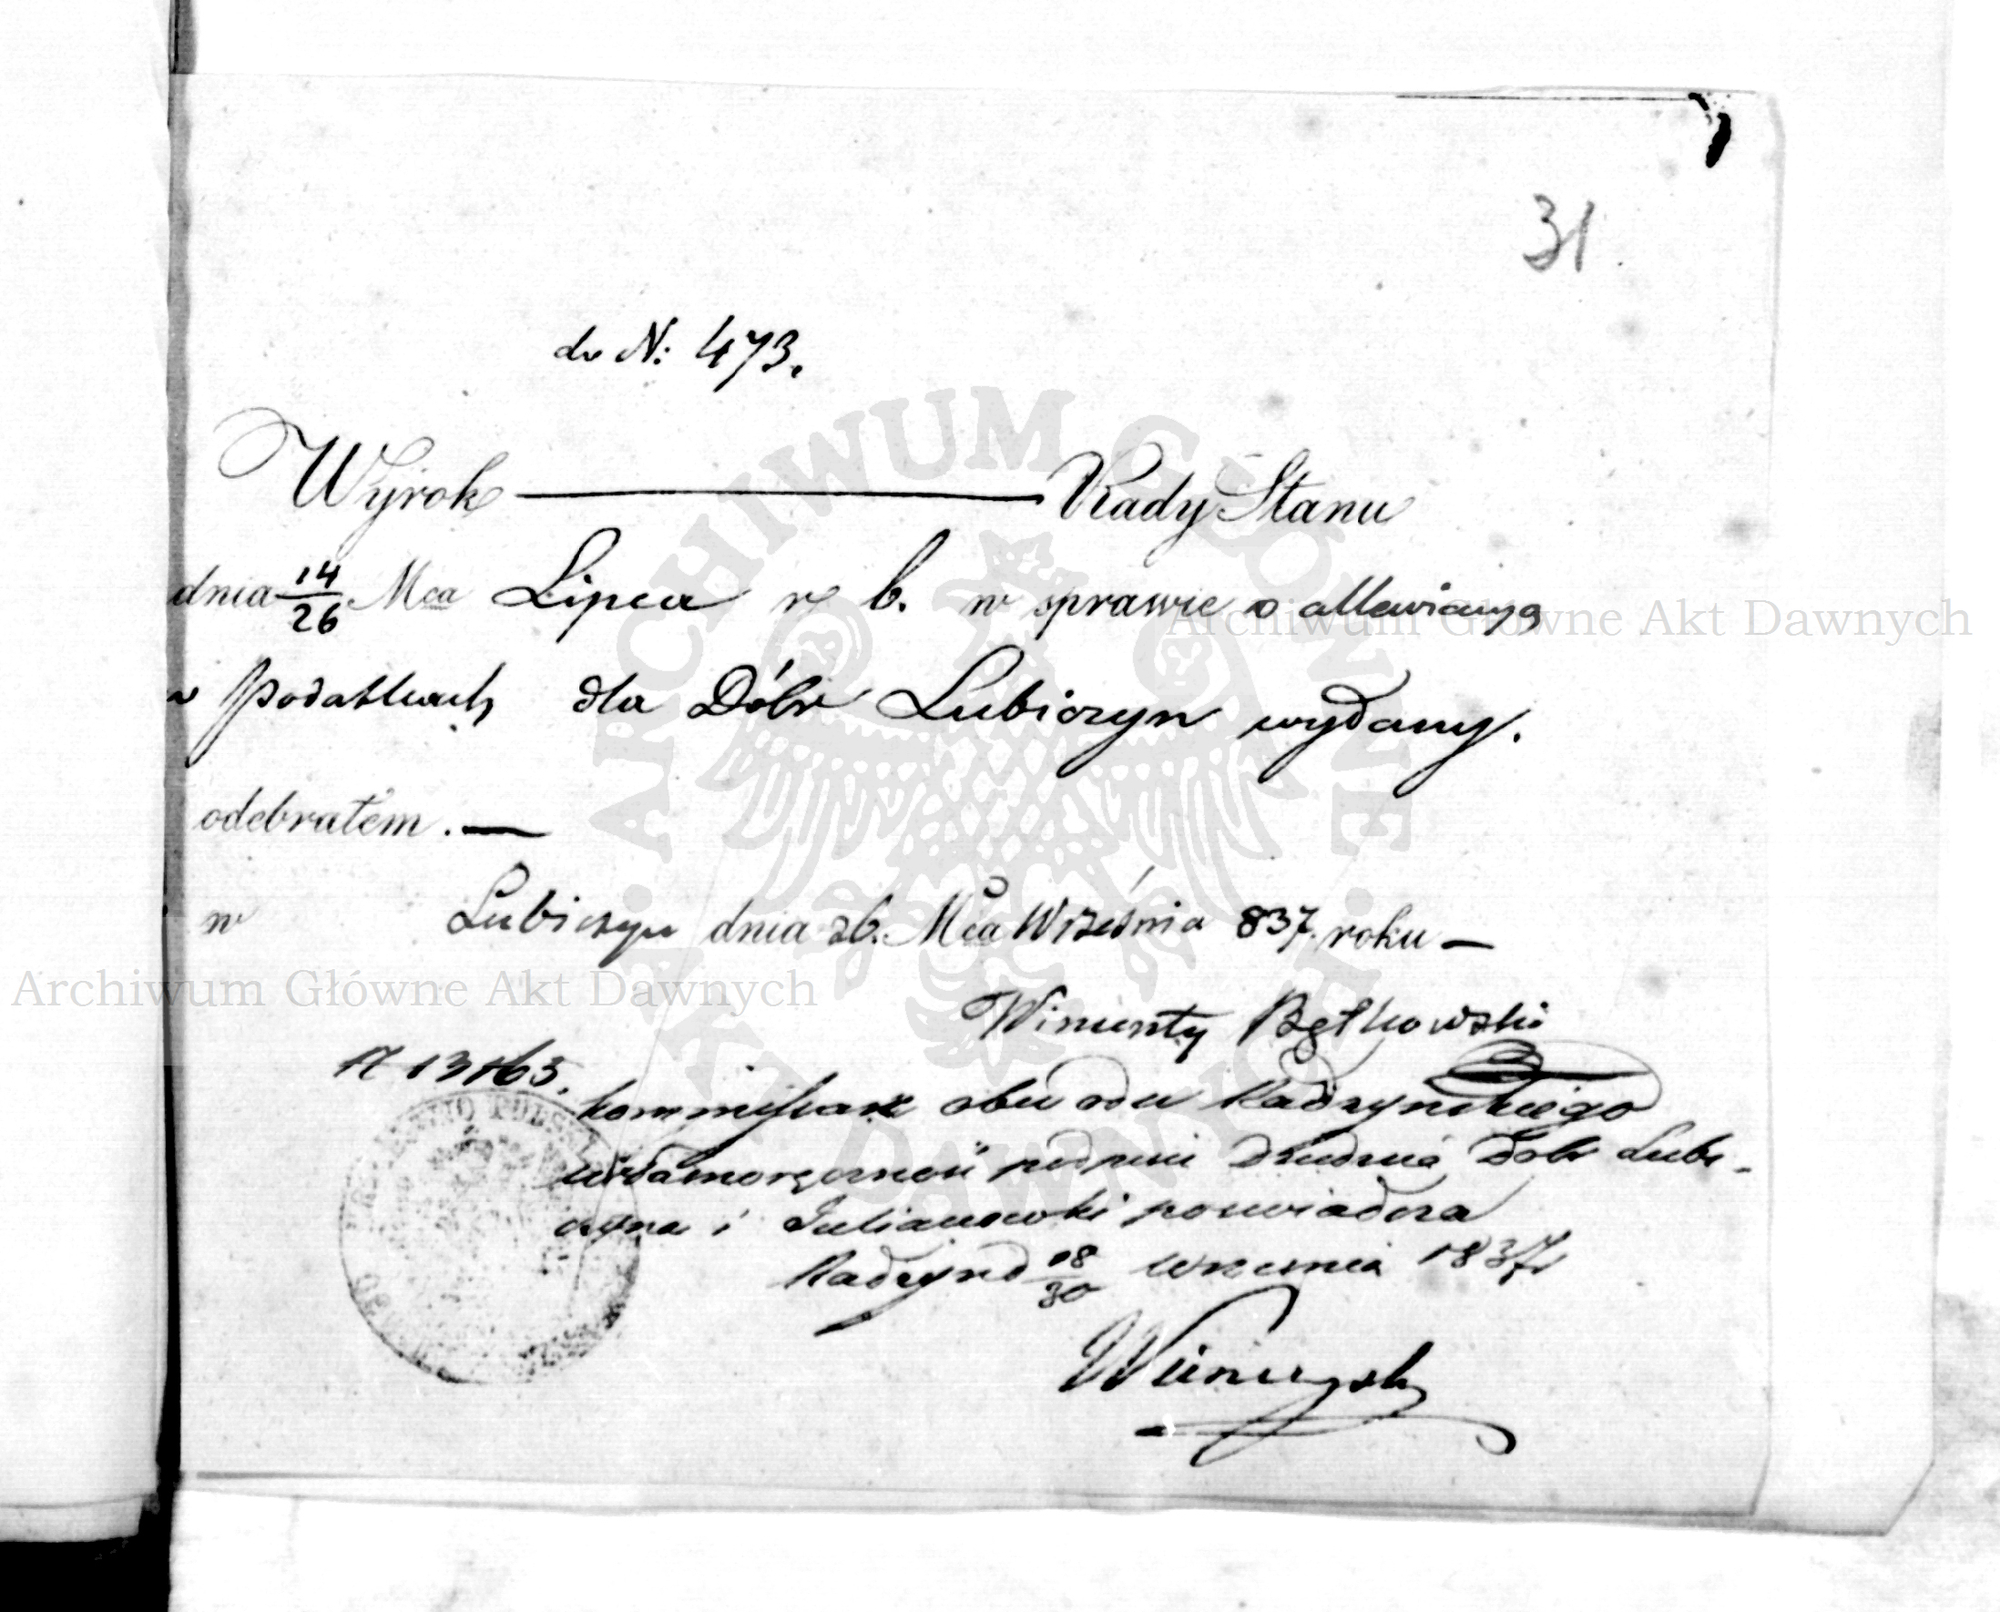 31.
do N: 473.
Wyrok — Rady Stanu
dnia 14/26 Mca Lipca r b. w sprawie o allewiacyą
w Podatkach dla Dóbr Lubiczyn wydany.
odebrałem. —
w Lubiczyn dnia 26. Mca Września 837. roku —
Wincenty Bętkowski
N 13163.
Kommissarz obwodu Radzynskiego
własnoręczność podpisu Dziedzica Dobr Lubi-
czyna i Julianowski poswiadcza
Radzyn d 18/30 Wrzesnia 1837
Archiwum Główne Akt Dawnych
Archiwum Główne Akt Dawnych
ARCHIWUM GŁÓWNE AKT DAWNYCH